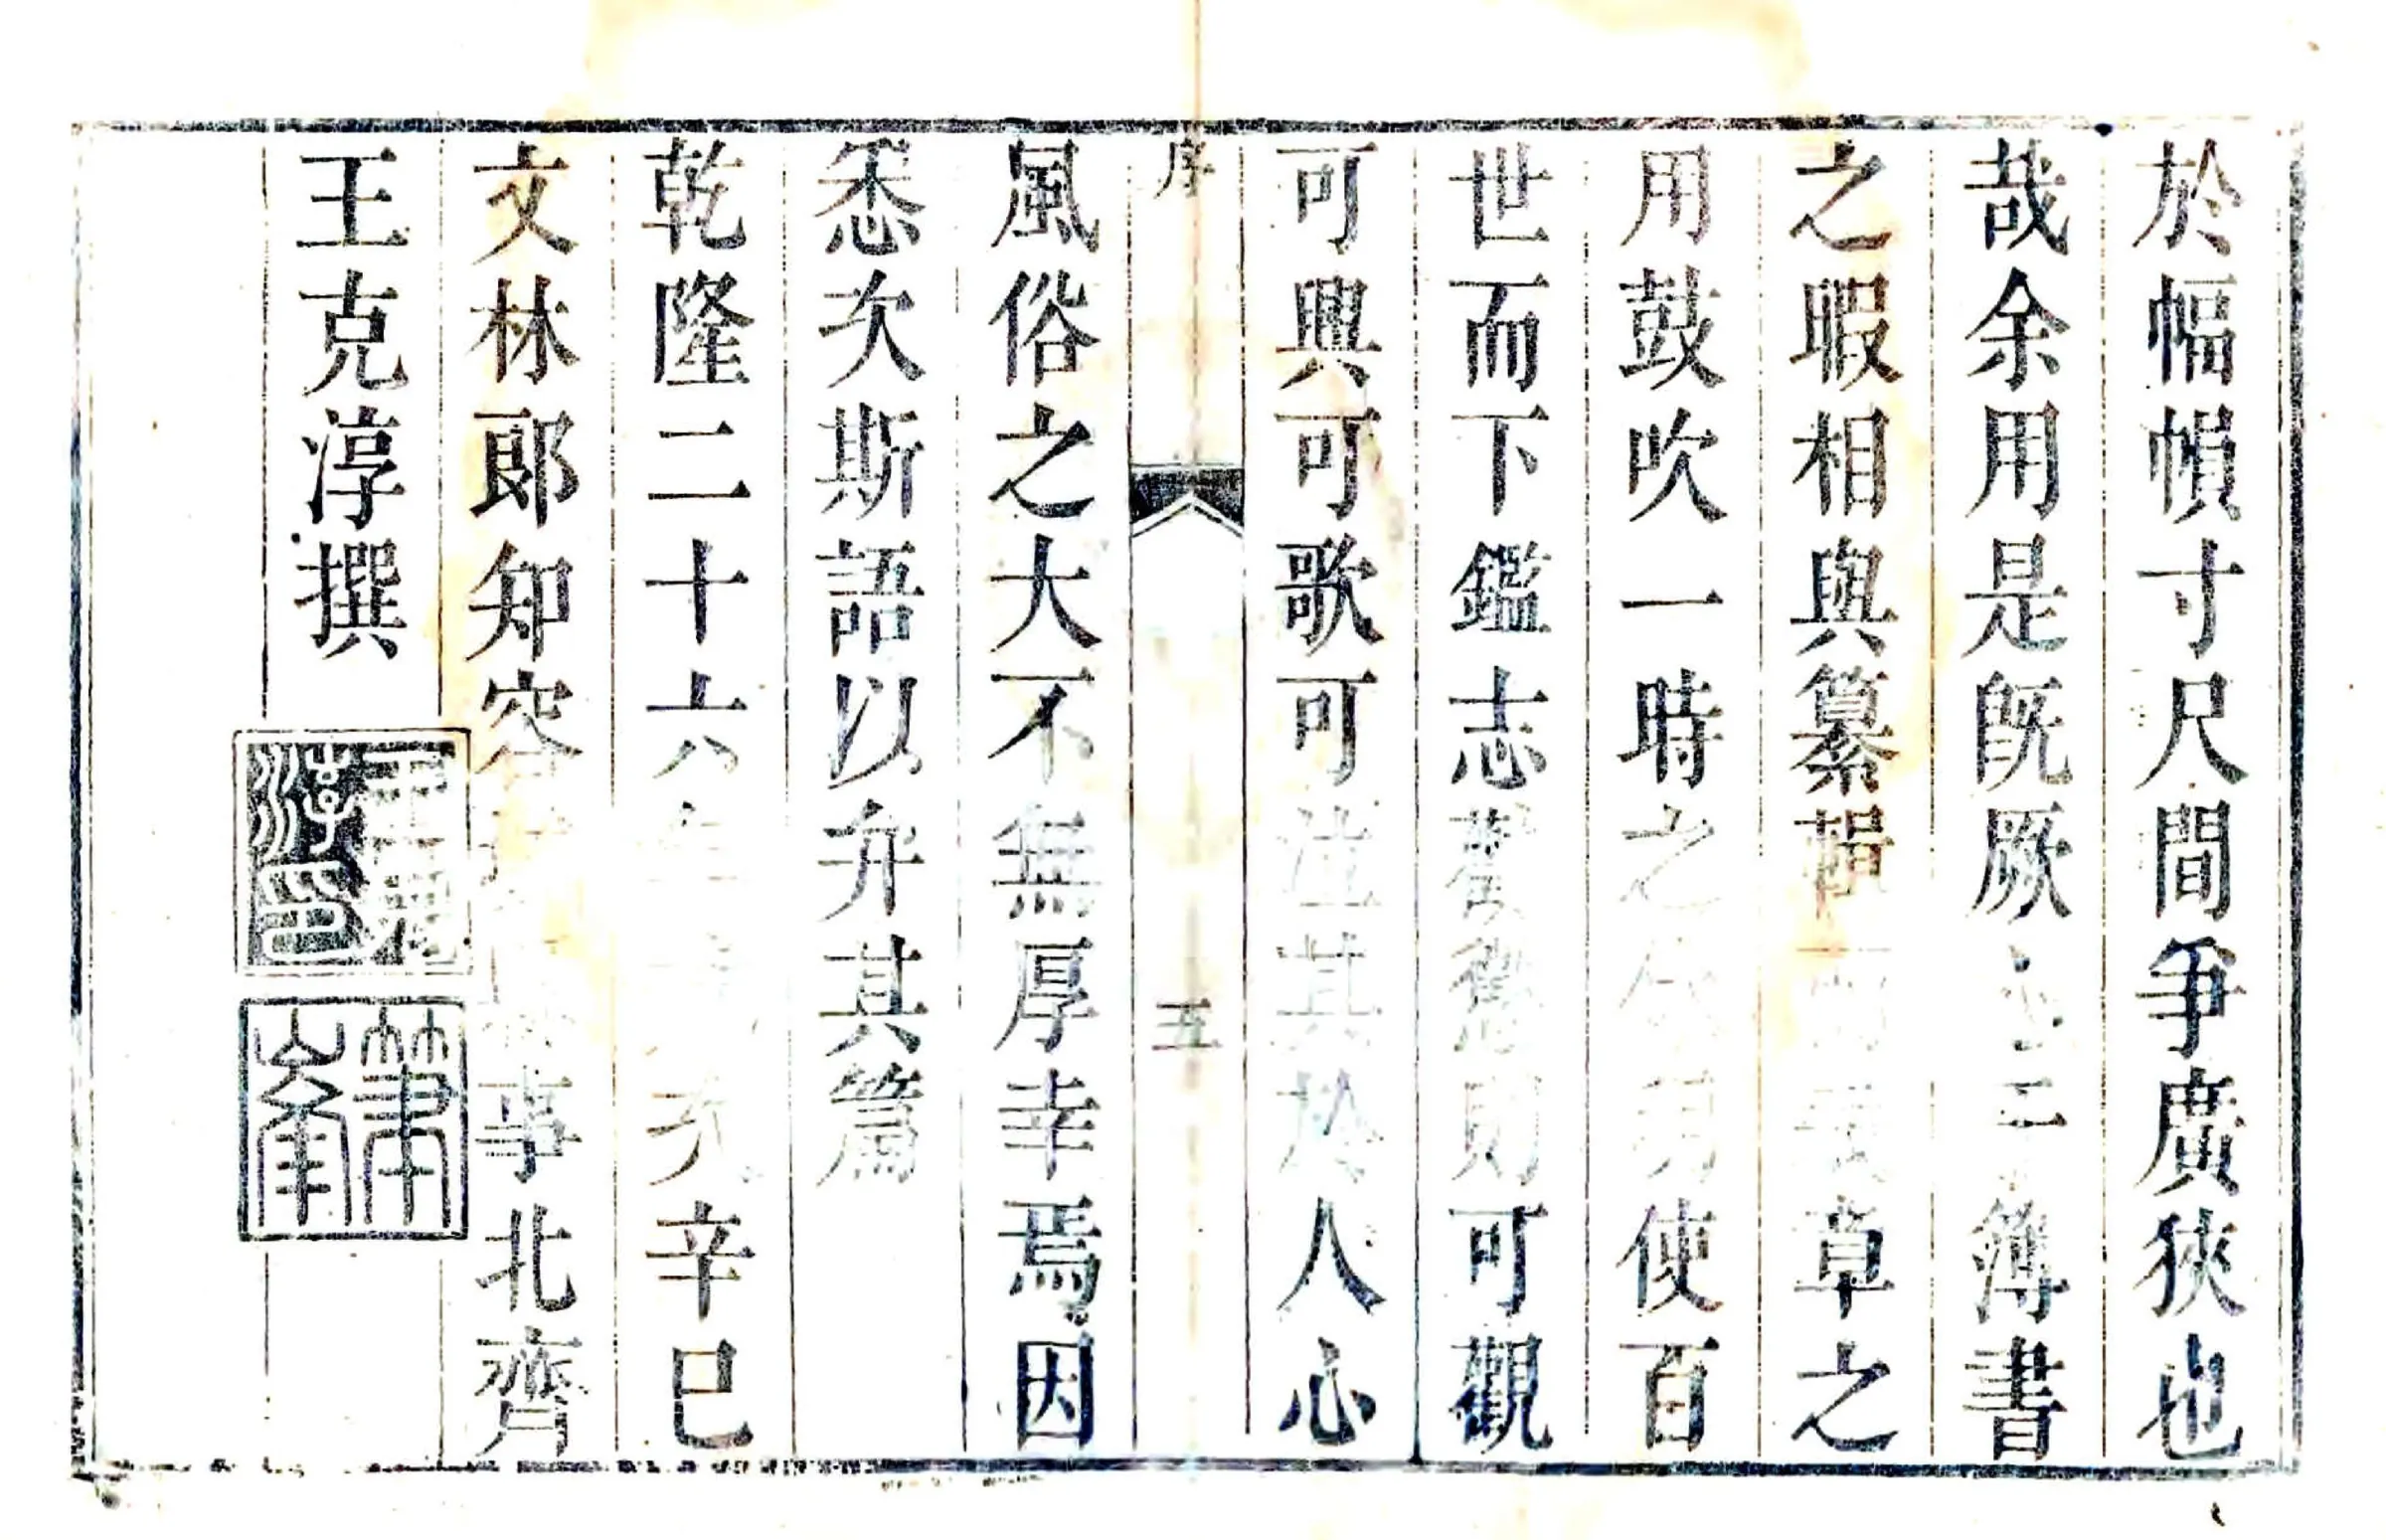 於幅幀寸尺間爭廣狹也
哉余用是旣厥心二簿書
之暇相與纂輯章之
用鼓吹一時之使百
世而下鑑志警懲則可觀
可興可歌可泣其於人心
序
五
風俗之大不無厚幸焉因
恷次斯語以弁其篇
乾隆二十六年辛巳
文林郎知容事北齊
王克淳撰
王克淳印
筆峯